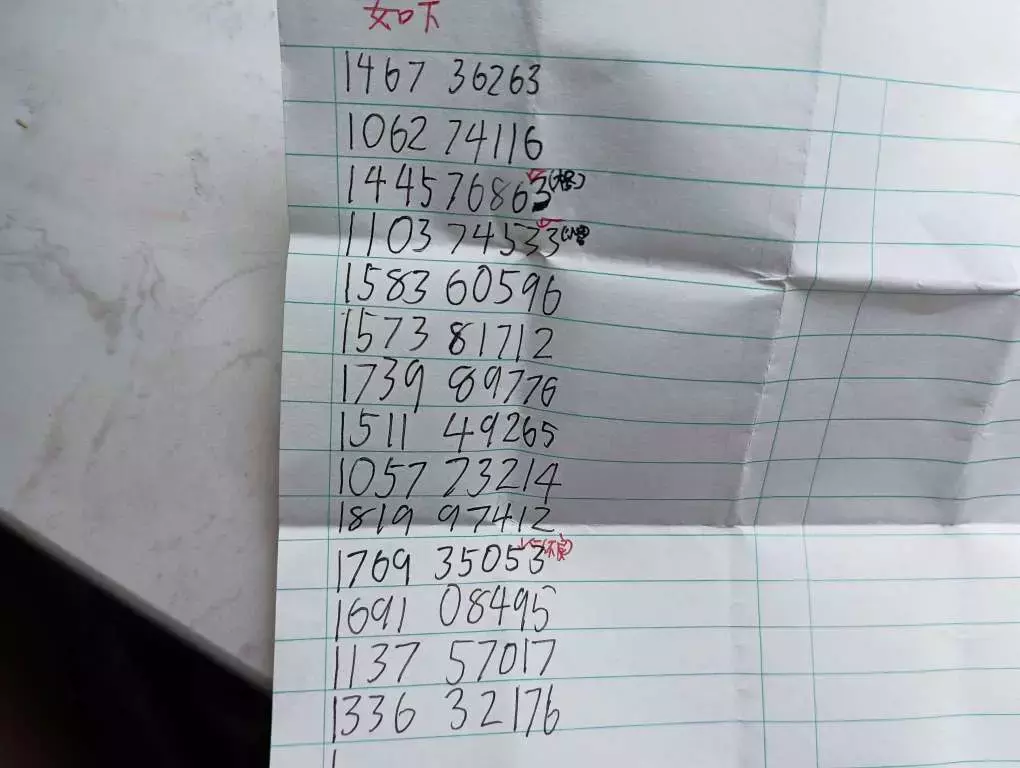 如下
1467 36263
1062 74116
1445 76863
1103 74533
1583 60596
1573 81712
1739 89776
1511 49265
1057 73214
1819 97412
1769 35053
1691 08495
1137 57017
1336 32176